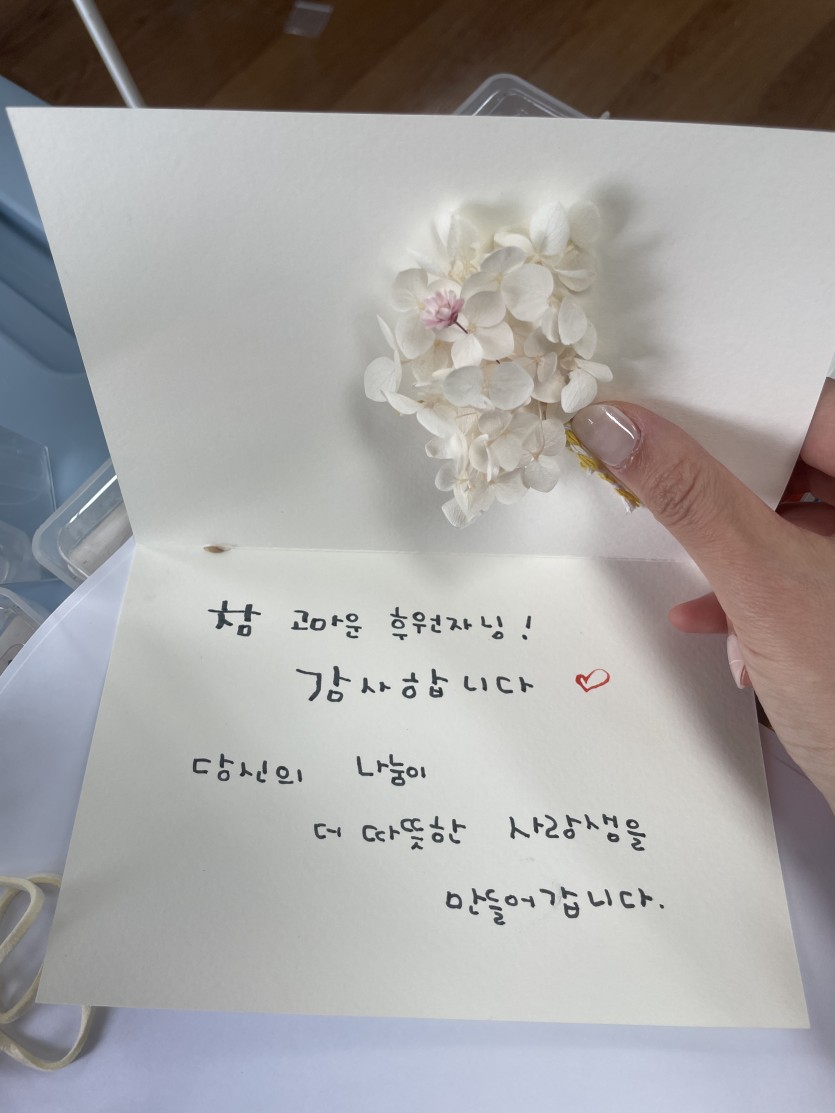 참 고마운 후원자님!
감사합니다 ♡
당신의 나눔이
더 따뜻한 사랑샘을
만들어갑니다.